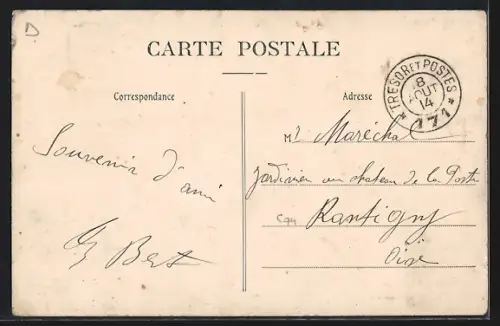 D
CARTE POSTALE
Correspondance
Adresse
TRESOR ET POSTES
8
AOUT
14
* 171 *
Mr Maréchal
Jardinier au chateau de la Poste
Rantigny
Oise
Souvenir d'ami
Bert